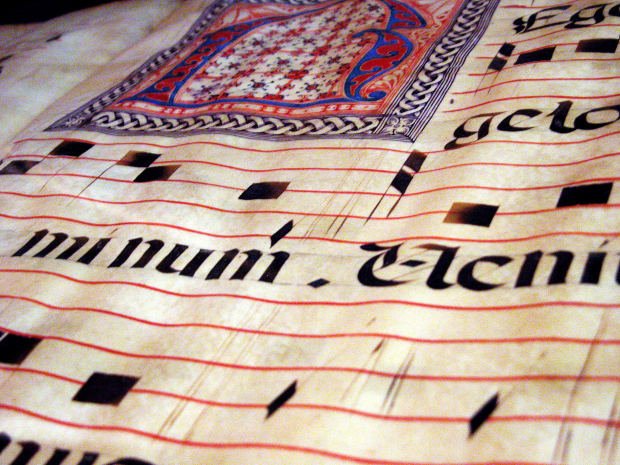 Ego
gelo
minum . Veni